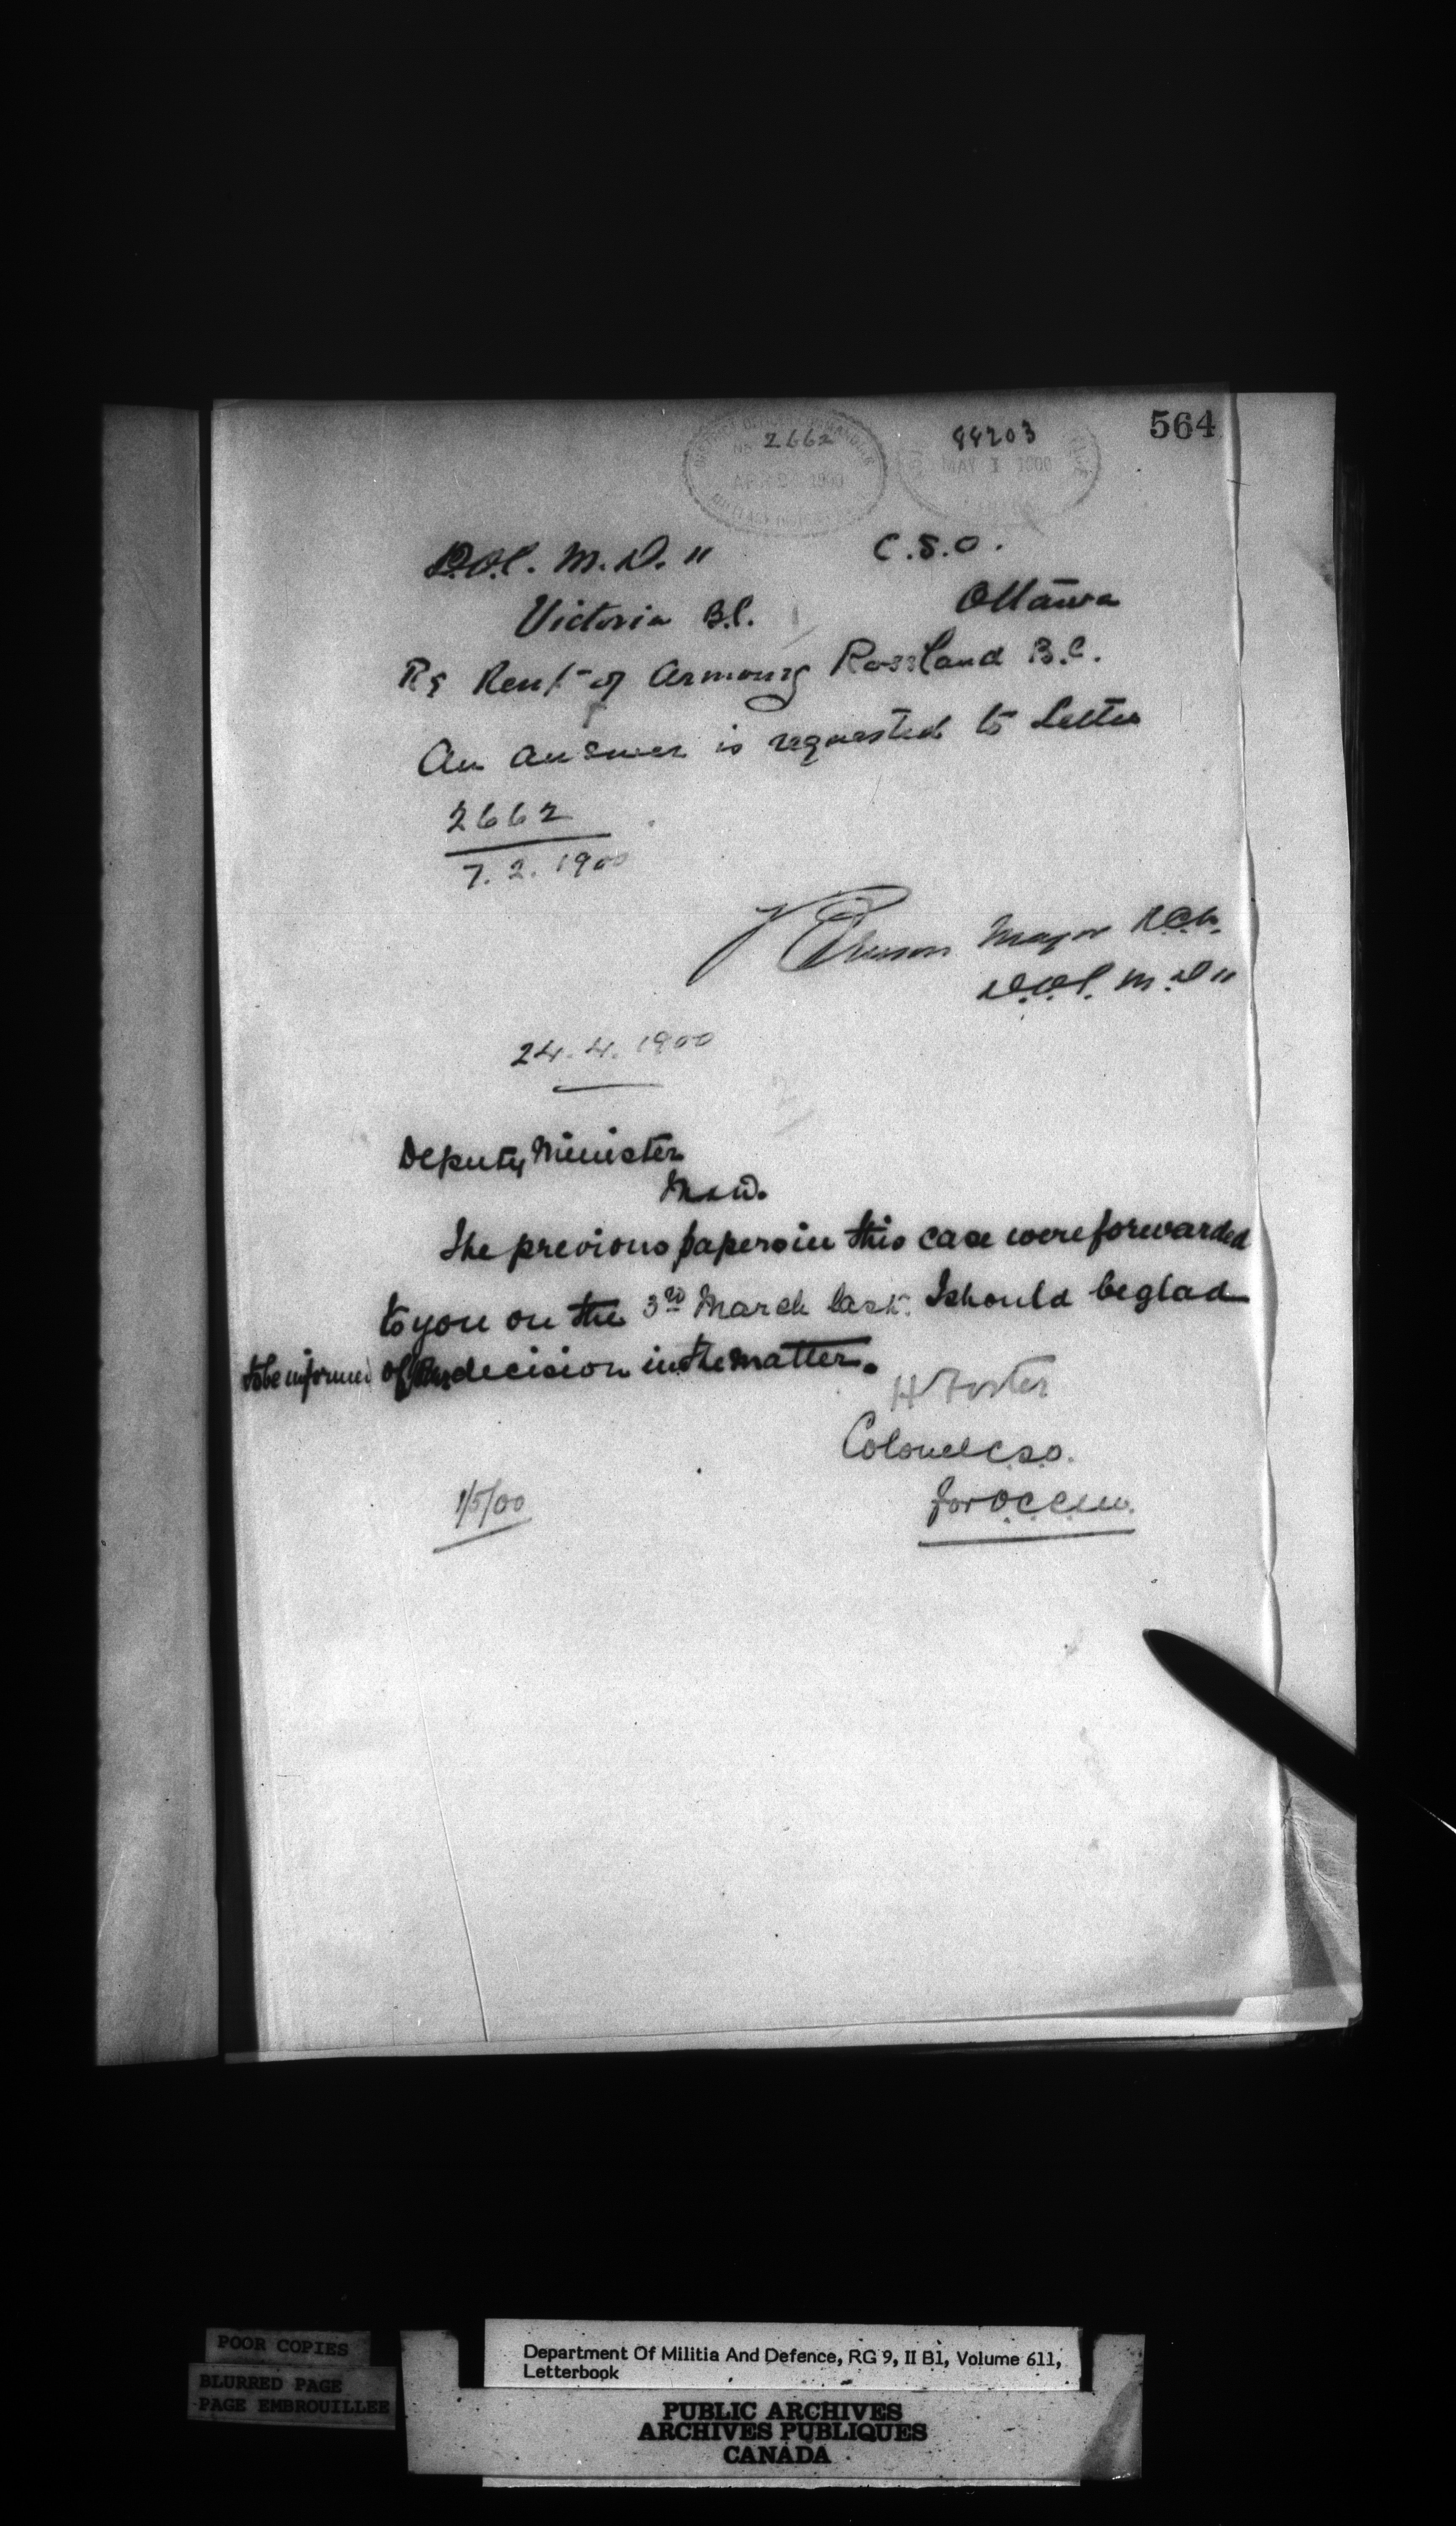 564
2662
44203
MAY 1 1900
D.O.C. M.D. 11
C.S.O.
Victoria B.C.
Ottawa
Re Rent of Armoury Rossland B.C.
An answer is requested to Letter
2662
7. 2. 1900
Major R.C.A.
D.O.C. M.D 11
24. 4. 1900
Deputy Minister
M & D.
The previous papers in this case were forwarded
to you on the 3rd March last. I should be glad
to be informed of the decision in the matter.
H Foster
Colonel C.S.O.
1/5/00
for O.C.C.M.
POOR COPIES
BLURRED PAGE
PAGE EMBROUILLEE
Department Of Militia And Defence, RG 9, II B1, Volume 611,
Letterbook
PUBLIC ARCHIVES
ARCHIVES PUBLIQUES
CANADA